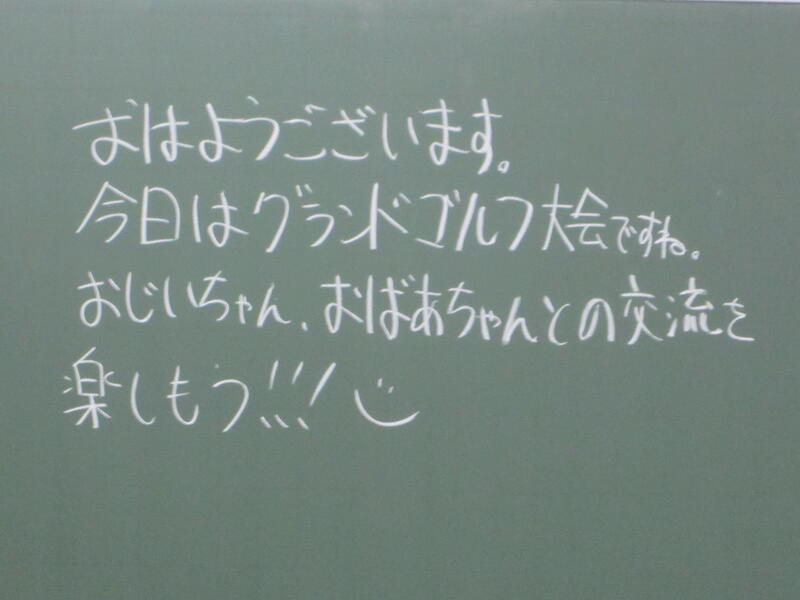 おはようございます。
今日はグランドゴルフ大会ですね。
おじいちゃん、おばあちゃんとの交流を
楽しもう!!!